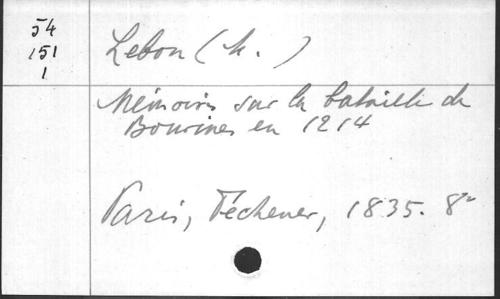 54
151
1
Lebon (h.)
Mémoires sur la bataille de
Bouvines en 1214
Paris, Téchener, 1835. 8°